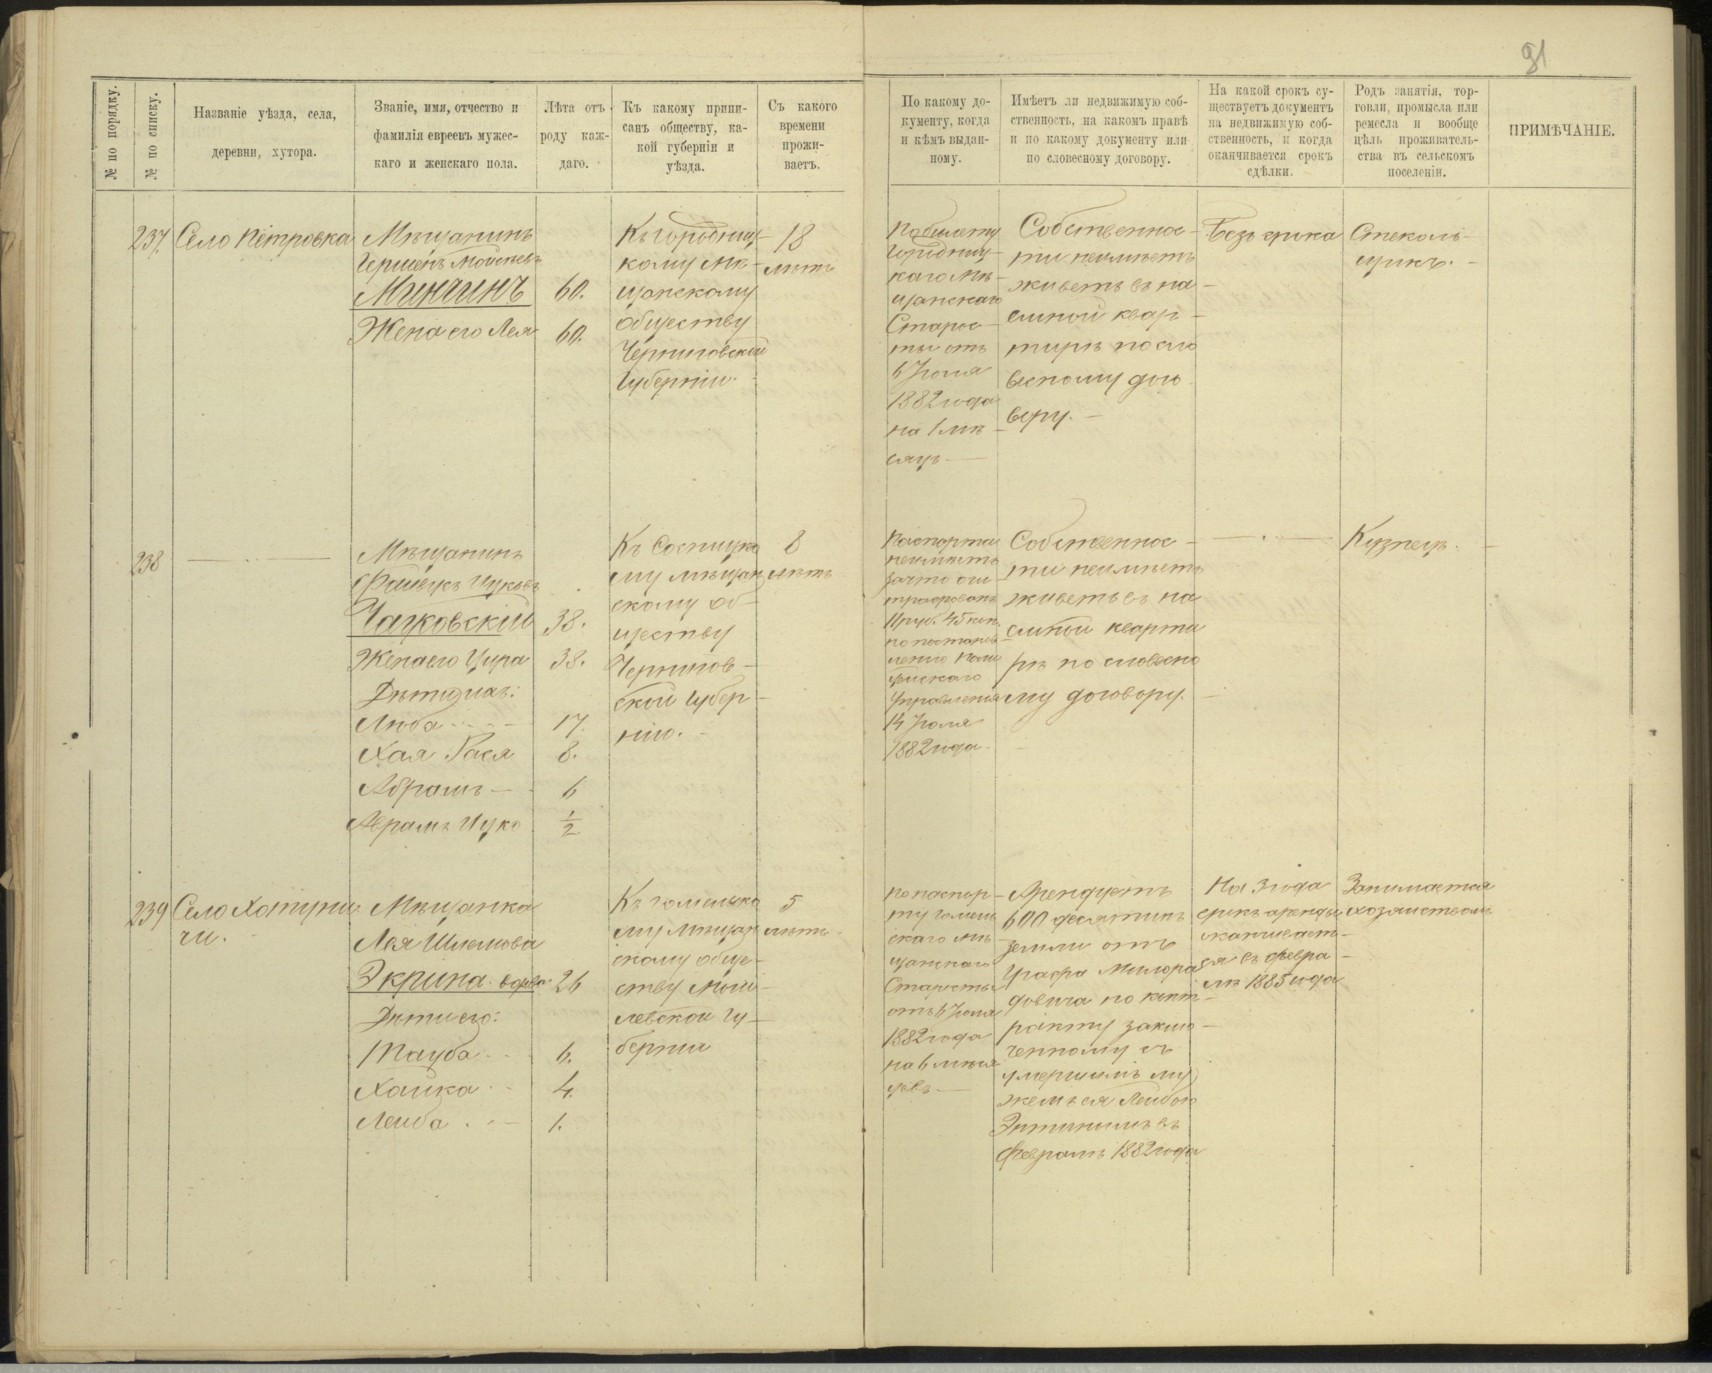 91
№ по порядку.
№ по списку.
Названіе уѣзда, села,
деревни, хутора.
Званіе, имя, отчество и
фамилія евреевъ мужес-
каго и женскаго пола.
Лѣта отъ
роду каж-
даго.
Къ какому припи-
санъ обществу, ка-
кой губерніи и
уѣзда.
Съ какого
времени
прожи-
ваетъ.
По какому до-
кументу, когда
и кѣмъ выдан-
ному.
Имѣетъ ли недвижимую соб-
ственность, на какомъ правѣ
и по какому документу или
по словесному договору.
На какой срокъ су-
ществуетъ документъ
на недвижимую соб-
ственность, и когда
оканчивается срокъ
сдѣлки.
Родъ занятія, тор-
говли, промысла или
ремесла и вообще
цѣль проживатель-
ства въ сельскомъ
поселеніи.
ПРИМѢЧАНІЕ.
237
Село Петровка
Мѣщанинъ
Гершенъ Мойсеевъ
Минчинъ 60.
Жена его Лея 60.
Къ Городниц-
кому мѣ-
щанскому
обществу
Черниговской
Губерніи.
18
лѣтъ
По билету
Городниц-
каго мѣ-
щанскаго
Старос-
ты отъ
6 Іюля
1882 года
на 1 мѣ-
сяцъ
Собственнос-
ти неимѣетъ
живетъ въ на-
емной квар-
тирѣ по сло
весному дого
вору.
Безъ срока
Стеколь-
щикъ.
238
Мѣщанинъ
Ицковъ
Чацковскій 38.
Жена его Цира 38.
Дѣти ихъ:
Люба 17.
Хая Рася 8.
Абрамъ 6
Аврамъ Ицко 1/2
Къ Сосницко
му мѣщан
скому об-
ществу
Чернигов-
ской Губер-
ніи.
8
лѣтъ
Паспорта
неимѣетъ
за что
штрафованъ
45 коп.
по постанов
ленію Поли
цейскаго
Управленія
14 Іюля
1882 года
Собственнос-
ти неимѣетъ
живетъ въ на
емной кварти
рѣ по словесно
му договору.
Кузнецъ.
239
Село Хотуни
чи.
Мѣщанка
Лея Шлемова
Экрина вдова 26
Дѣти его:
Тауба 6.
Хайка 4.
Лейба 1.
Къ Гомельско
му мѣщан
скому обще-
ству Моги-
левской Гу-
берніи
5
лѣтъ
По паспор-
ту Гомель
скаго мѣ-
щанскаго
Старосты
отъ 6 Іюля
1882 года
на 6 мѣся
цевъ
Арендуетъ
600 десятинъ
земли отъ
Графа Милора
довича по конт-
ракту заклю-
ченному съ
умершимъ му
жемъ ея Лейбою
въ
Февралѣ 1882 года
На 3 года
срокъ аренды
оканчивает-
ся въ Февра-
лѣ 1885 года
Занимается
хозяйствомъ